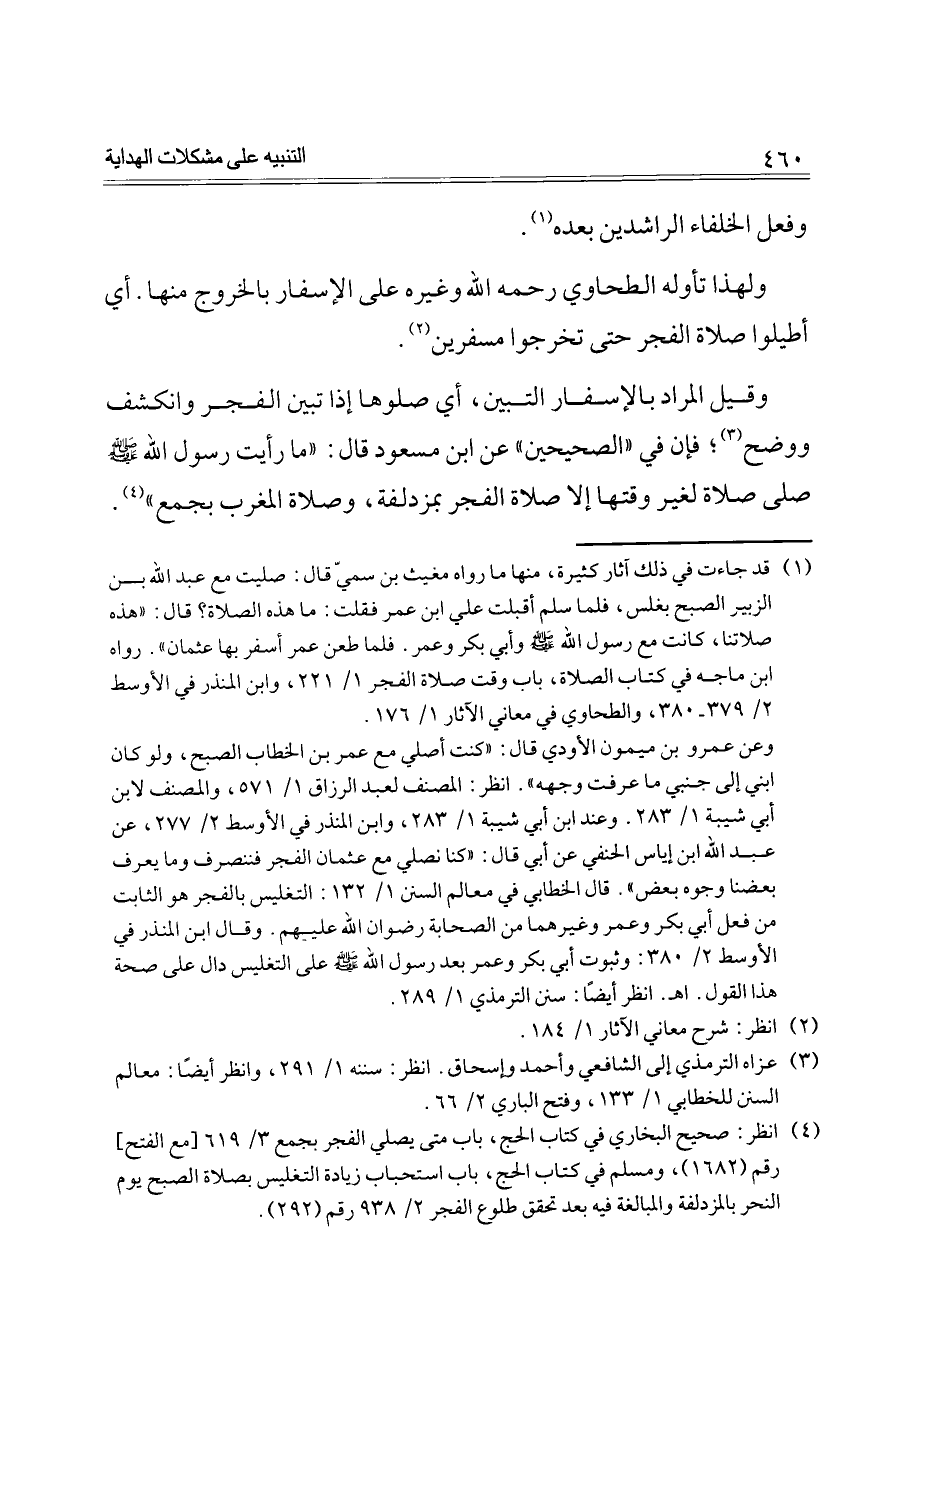 ٤٦٠ التنبيه على مشكلات الهداية
وفعل الخلفاء الراشدين بعده(١).
ولهذا تأوله الطحاوي رحمه الله وغيره على الإسفار بالخروج منها. أي
أطيلوا صلاة الفجر حتى تخرجوا مسفرين(٢).
وقيل المراد بالإسفار التبين، أي صلوها إذا تبين الفجر وانكشف
ووضح(٣)؛ فإن في «الصحيحين» عن ابن مسعود قال: «ما رأيت رسول الله ﷺ
صلى صلاة لغير وقتها إلا صلاة الفجر بمزدلفة، وصلاة المغرب بجمع»(٤).
(١) قد جاءت في ذلك آثار كثيرة، منها ما رواه مغيث بن سميّ قال: صليت مع عبد الله بن
الزبير الصبح بغلس، فلما سلم أقبلت علي ابن عمر فقلت: ما هذه الصلاة؟ قال: «هذه
صلاتنا، كانت مع رسول الله ﷺ وأبي بكر وعمر. فلما طعن عمر أسفر بها عثمان». رواه
ابن ماجه في كتاب الصلاة، باب وقت صلاة الفجر ١/ ٢٢١، وابن المنذر في الأوسط
٢/ ٣٧٩-٣٨٠، والطحاوي في معاني الآثار ١/ ١٧٦.
وعن عمرو بن ميمون الأودي قال: «كنت أصلي مع عمر بن الخطاب الصبح، ولو كان
ابني إلى جنبي ما عرفت وجهه». انظر: المصنف لعبد الرزاق ١/ ٥٧١، والمصنف لابن
أبي شيبة ١/ ٢٨٣. وعند ابن أبي شيبة ١/ ٢٨٣، وابن المنذر في الأوسط ٢/ ٢٧٧، عن
عبد الله ابن إياس الحنفي عن أبي قال: «كنا نصلي مع عثمان الفجر فننصرف وما يعرف
بعضنا وجوه بعض». قال الخطابي في معالم السنن ١/ ١٣٢: التغليس بالفجر هو الثابت
من فعل أبي بكر وعمر وغيرهما من الصحابة رضوان الله عليهم. وقال ابن المنذر في
الأوسط ٢/ ٣٨٠: وثبوت أبي بكر وعمر بعد رسول الله ﷺ على التغليس دال على صحة
هذا القول. اهـ. انظر أيضًا: سنن الترمذي ١/ ٢٨٩.
(٢) انظر: شرح معاني الآثار ١/ ١٨٤.
(٣) عزاه الترمذي إلى الشافعي وأحمد وإسحاق. انظر: سننه ١/ ٢٩١، وانظر أيضًا: معالم
السنن للخطابي ١/ ١٣٣، وفتح الباري ٢/ ٦٦.
(٤) انظر: صحيح البخاري في كتاب الحج، باب متى يصلي الفجر بجمع ٣/ ٦١٩ [مع الفتح]
رقم (١٦٨٢)، ومسلم في كتاب الحج، باب استحباب زيادة التغليس بصلاة الصبح يوم
النحر بالمزدلفة والمبالغة فيه بعد تحقق طلوع الفجر ٢/ ٩٣٨ رقم (٢٩٢).